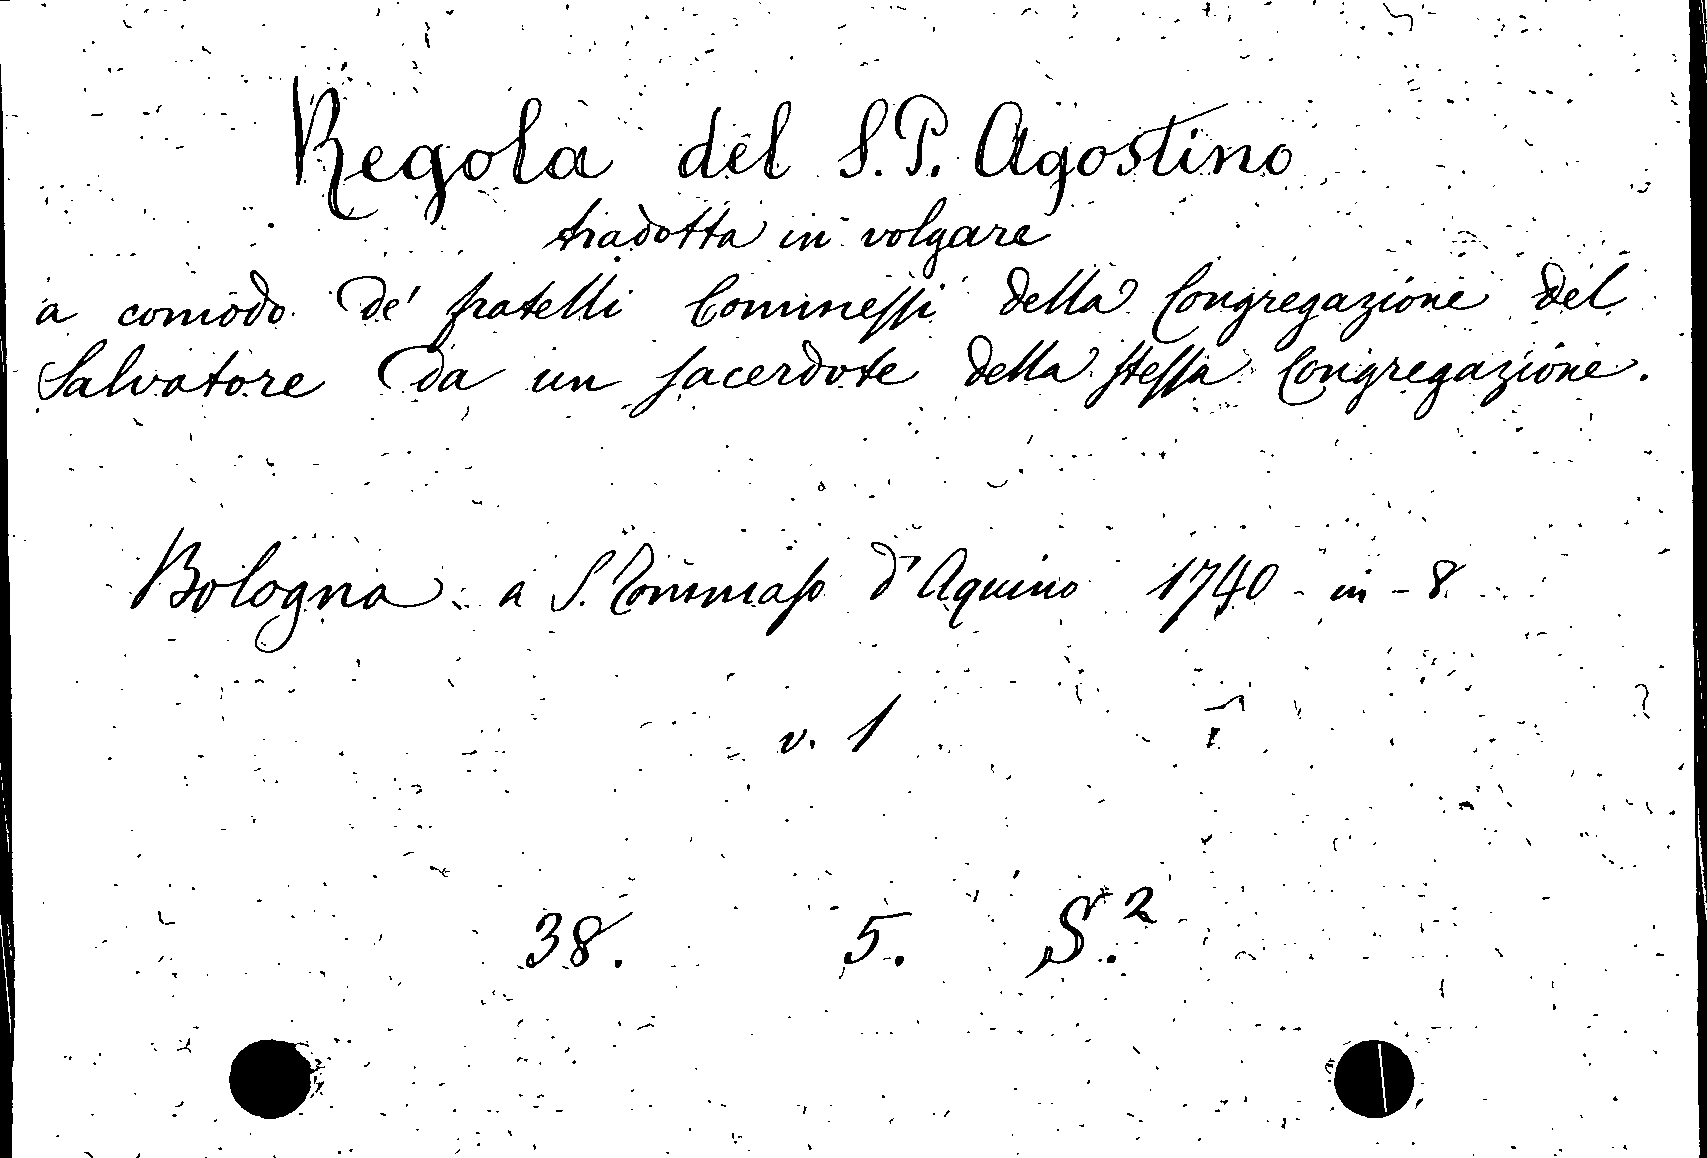 Regola del S. P. Agostino
tradotta in volgare
a comodo de' fratelli Commessi della Congregazione del
Salvatore da un sacerdote della stessa Congregazione.
Bologna a S. Tommaso d'Aquino 1740 - in - 8.
v. 1
38. 5. S.²